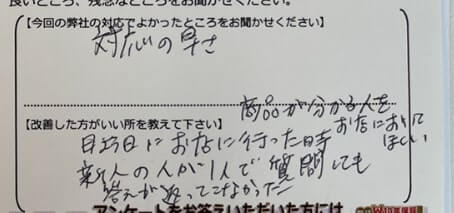 良いところ、残念なところをお聞かせください。
【今回の弊社の対応でよかったところをお聞かせください】
対応の早さ
【改善した方がいい所を教えて下さい】
日曜日にお店に行った時
新人の人が1人で質問しても
答えが返ってこなかった
商品が分かる人を
お店において
ほしい
アンケートをお答えいただいた方には